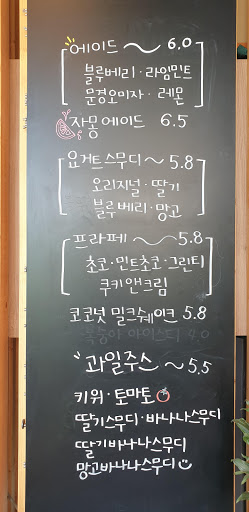 에이드 ~ 6.0
블루베리 · 라임민트
문경오미자 · 레몬
자몽에이드 6.5
요거트스무디 ~ 5.8
오리지널 · 딸기
블루베리 · 망고
프라페 ~ 5.8
초코 · 민트초코 · 그린티
쿠키앤크림
코코넛 밀크쉐이크 5.8
복숭아 아이스티 4.0
과일주스 ~ 5.5
키위 · 토마토
딸기스무디 · 바나나스무디
딸기바나나스무디
망고바나나스무디